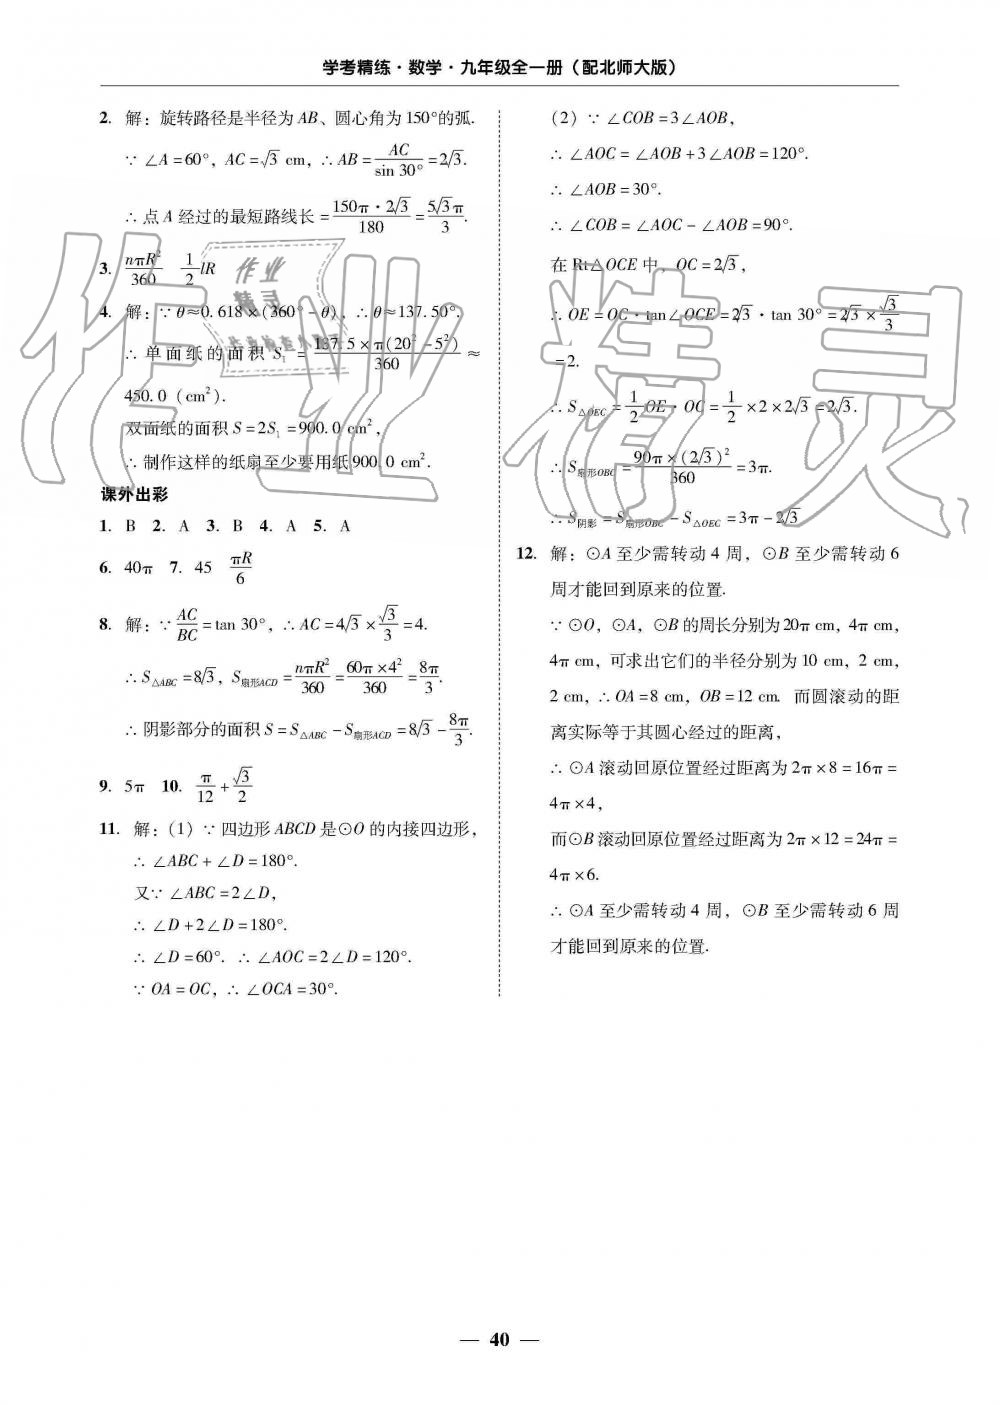 学考精练·数学·九年级全一册（配北师大版）
2. 解：旋转路径是半径为 AB、圆心角为 150°的弧.
∵ ∠A=60°，AC=√3 cm，∴ AB=AC/sin 30°=2√3.
∴ 点 A 经过的最短路线长=150π·2√3/180=5√3π/3.
3. nπR²/360 1/2 lR
4. 解：∵ θ≈0.618×(360°-θ)，∴ θ≈137.50°.
∴ 单面纸的面积 S₁=137.5×π(20²-5²)/360≈
450.0 (cm²).
双面纸的面积 S=2S₁=900.0 cm²，
∴ 制作这样的纸扇至少要用纸 900.0 cm².
课外出彩
1. B 2. A 3. B 4. A 5. A
6. 40π 7. 45 πR/6
8. 解：∵ AC/BC=tan 30°，∴ AC=4√3×√3/3=4.
∴ S△ABC=8√3，S扇形ACD=nπR²/360=60π×4²/360=8π/3.
∴ 阴影部分的面积 S=S△ABC-S扇形ACD=8√3-8π/3.
9. 5π 10. π/12+√3/2
11. 解：(1) ∵ 四边形 ABCD 是⊙O 的内接四边形，
∴ ∠ABC+∠D=180°.
又∵ ∠ABC=2∠D，
∴ ∠D+2∠D=180°.
∴ ∠D=60°. ∴ ∠AOC=2∠D=120°.
∵ OA=OC，∴ ∠OCA=30°.
(2) ∵ ∠COB=3∠AOB，
∴ ∠AOC=∠AOB+3∠AOB=120°.
∴ ∠AOB=30°.
∴ ∠COB=∠AOC-∠AOB=90°.
在 Rt△OCE 中，OC=2√3，
∴ OE=OC·tan∠OCE=2√3·tan 30°=2√3×√3/3
=2.
∴ S△OEC=1/2 OE·OC=1/2×2×2√3=2√3.
∴ S扇形OBC=90π×(2√3)²/360=3π.
∴ S阴影=S扇形OBC-S△OEC=3π-2√3
12. 解：⊙A 至少需转动 4 周，⊙B 至少需转动 6
周才能回到原来的位置.
∵ ⊙O，⊙A，⊙B 的周长分别为 20π cm，4π cm，
4π cm，可求出它们的半径分别为 10 cm，2 cm，
2 cm，∴ OA=8 cm，OB=12 cm. 而圆滚动的距
离实际等于其圆心经过的距离，
∴ ⊙A 滚动回原位置经过距离为 2π×8=16π=
4π×4，
而⊙B 滚动回原位置经过距离为 2π×12=24π=
4π×6.
∴ ⊙A 至少需转动 4 周，⊙B 至少需转动 6 周
才能回到原来的位置.
— 40 —
作业精灵
作业
精灵